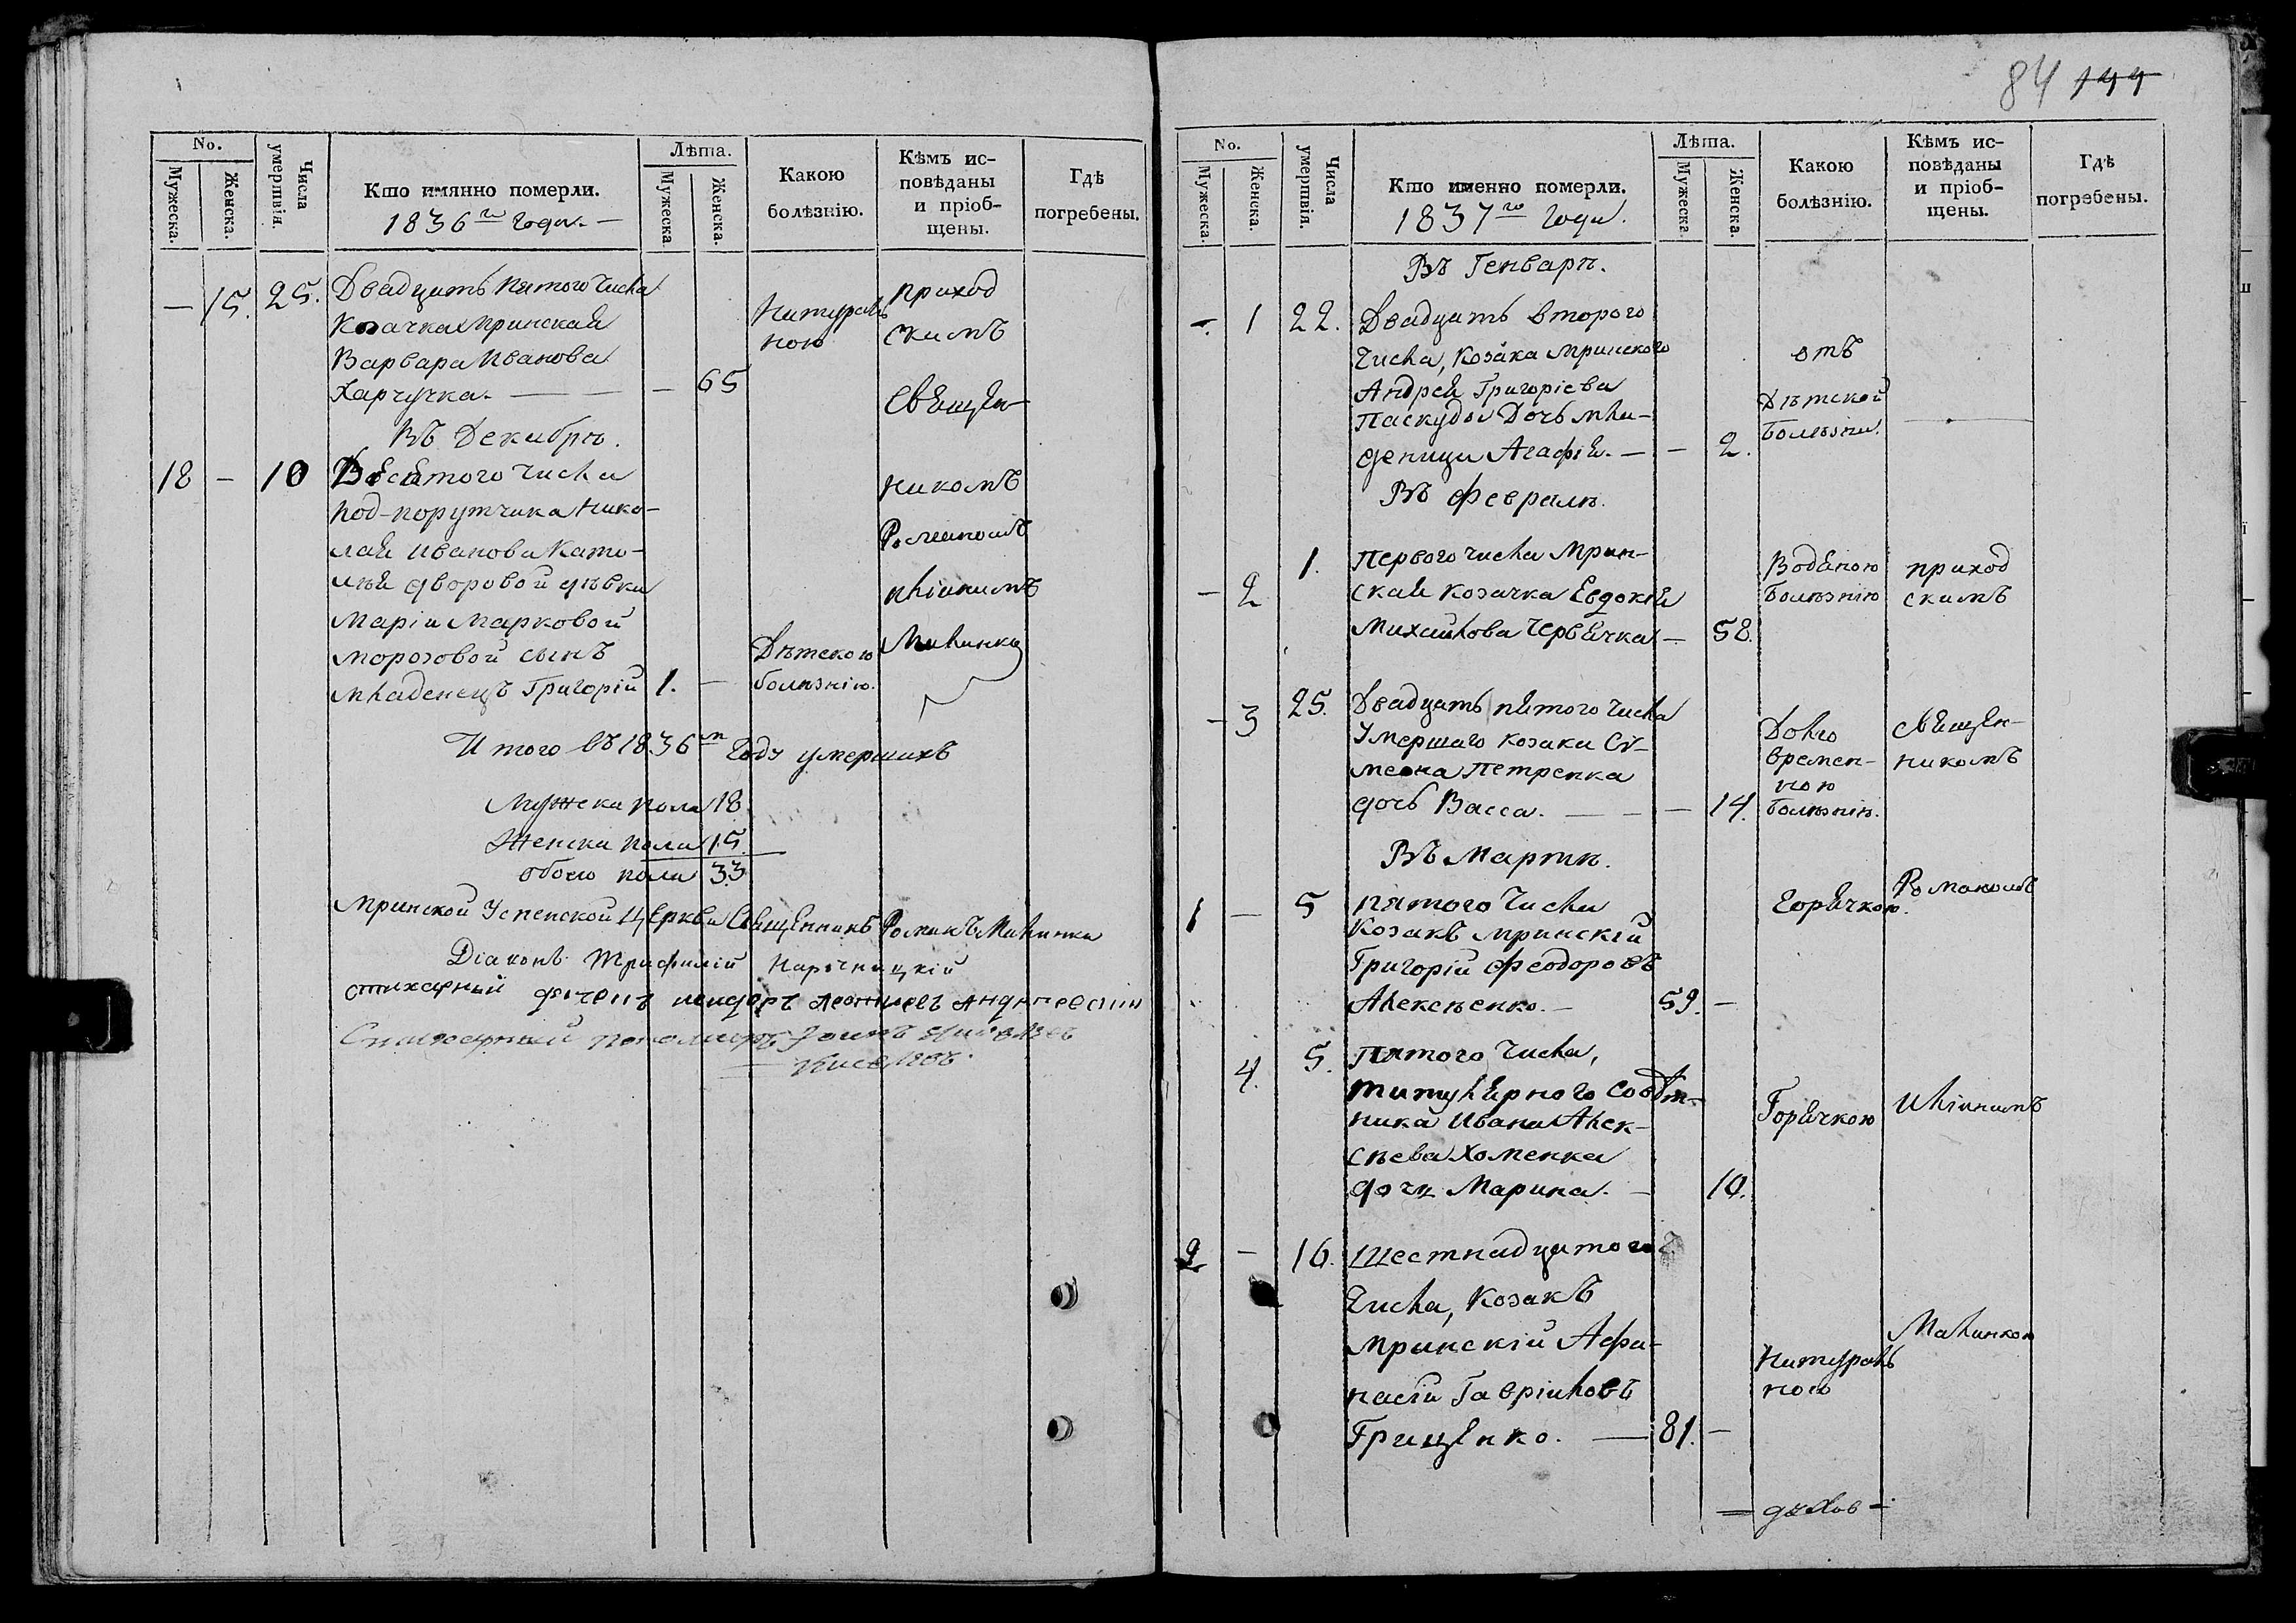 84 144
No.
Мужеска.
Женска.
Числа умертвія.
Кто имянно померли.
1836го года. —
Лѣта.
Мужеска
Женска.
Какою
болѣзнію.
Кѣмъ ис-
повѣданы
и пріоб-
щены.
Гдѣ
погребены.
— 15. 25. Двадцать пятого числа
Козачка мринская
Варвара Иванова
Харчучка. — — 65
Натураль
ною
приход
скимъ
свящѣн-
Въ Декабрѣ.
18 — 10 Десятого числа
под-порутчика Нико-
лая Иванова Като-
лѣя дворовой дѣвки
Маріи Марковой
Морозовой сынъ
младенецъ Григорій 1. —
Дѣтскою
болѣзнію.
никомъ
Романомъ
Иліинимъ
Малинкою
Итого въ 1836м Году умершихъ
Мужска пола 18.
Женска пола 15.
обоего пола 33.
Мринской Успенской Церкви Священникъ Романъ Малинка
Діаконъ Трифилій
Стихарный
Стихарный пономарь
No.
Мужеска.
Женска.
Числа умертвія.
Кто именно померли.
1837го Года.
Лѣта.
Мужеска
Женска.
Какою
болѣзнію.
Кѣмъ ис-
повѣданы
и пріоб-
щены.
Гдѣ
погребены.
Въ Генварѣ.
— 1 22. Двадцать второго
числа, козака мринского
Андрея Григоріева
Паскуды Дочь мла-
деница Агафія. — — 2.
отъ
Дѣтской
Болѣзни.
Въ Февралѣ.
— 2 1. Первого числа Мрин-
ская козачка Евдокія
Михайлова Червячка — 58.
Водяною
Болѣзнію
приход
скимъ
— 3 25. Двадцать пятого числа
Умершаго козака Си-
меона Петренка
дочь Васса. — — 14.
Долго
времен-
ною
Болѣзнію.
свящѣн-
никомъ
Въ Мартѣ.
1 — 5 пятого числа
Козакъ мринскій
Григорій Феодоровъ
Алексѣенко. — 59. —
Горячкою.
Романомъ
4. 5. Пятого числа,
титулярного совѣт-
ника Ивана Алек-
сѣева Хоменка
дочь Марина. — 10.
Горячкою
Иліинимъ
2 — 16. Шестнадцатого
числа, Козакъ
мринскій Афа-
насій Гавріиловъ
Грищѣнко. — 81. —
Натураль
ною
Малинкою